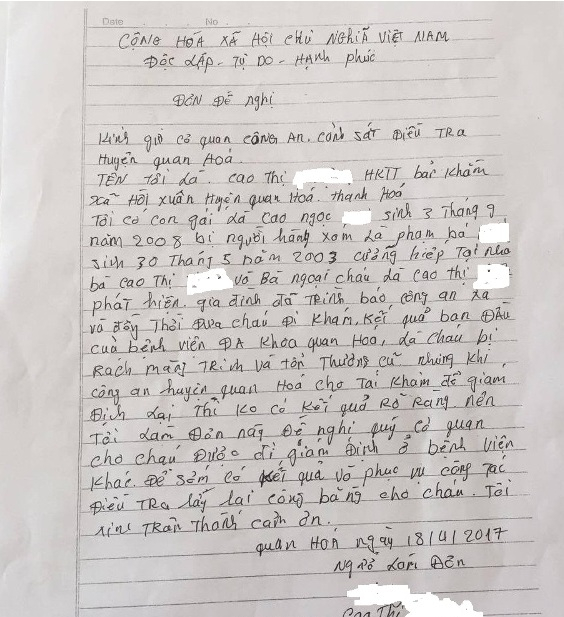 Date No
CỘNG HÓA XÃ HỘI CHỦ NGHĨA VIỆT NAM
ĐỘC LẬP - TỰ DO - HẠNH PHÚC
ĐƠN ĐỀ NGHỊ
Kính gửi cơ quan CÔNG AN. cảnh sát ĐIỀU TRA
Huyện quan Hoá.
TÊN Tôi Là. cao Thị HKTT bản Khằm
Xã Hồi xuân Huyện quan Hoá. Thanh Hoá
Tôi có con gái là cao ngọc sinh 3 Tháng 9
năm 2008 bị người hàng xóm là phạm bá
sinh 30 Tháng 5 năm 2003 cưỡng hiếp Tại nhà
bà cao Thị và Bà ngoại cháu là cao thị
phát hiện. gia đình đã Trình báo công an xã
và đồng Thời Đưa cháu Đi khám, Kết quả ban ĐẦU
của bệnh viên ĐA Khoa quan Hoa, là cháu bị
Rách màng TRinh và tổn Thương cũ nhưng khi
công an huyện quan Hoá cho Tái Khám để giám
Định Lại Thì Ko có Kết quả Rõ Ràng nên
Tôi Làm Đơn này Đề nghị quý cơ quan
cho cháu Được đi giám Định ở bệnh viện
Khác. Để sớm có Kết quả và phục vụ công Tác
ĐIỀU TRA lấy lại công bằng cho cháu. Tôi
xin TRân Thành cảm ơn.
quan HOÁ ngày 18/4/2017
Người Làm Đơn
Cao Thị